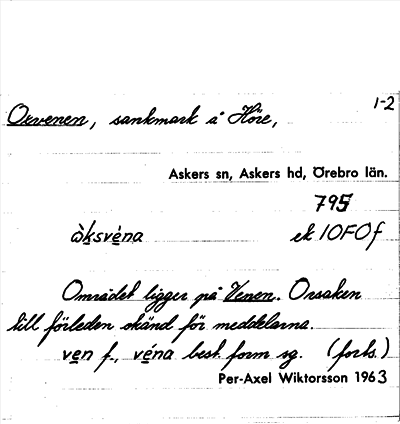 1-2
Oxvenen, sankmark å Höre,
Askers sn, Askers hd, Örebro län.
795
ek 10F0f
Området ligger på Venen. Orsaken
till förleden okänd för meddelarna.
ven f., véna best. form sg. (forts.)
Per-Axel Wiktorsson 1963